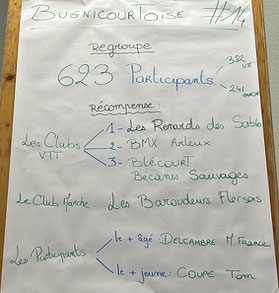 BUGNICOURTOISE #14
REGROUPE
623 Participants
382 VTT
241 marche
Récompense :
Les Clubs VTT
1 - Les Renards des Sables
2 - BMX Arleux
3 - BLÉCOURT
Bécanes Sauvages
Le Club Marche Les Baroudeurs Flersois
Les Participants
le + âgé DELCAMBRE M. France
le + jeune : COUPE Tom